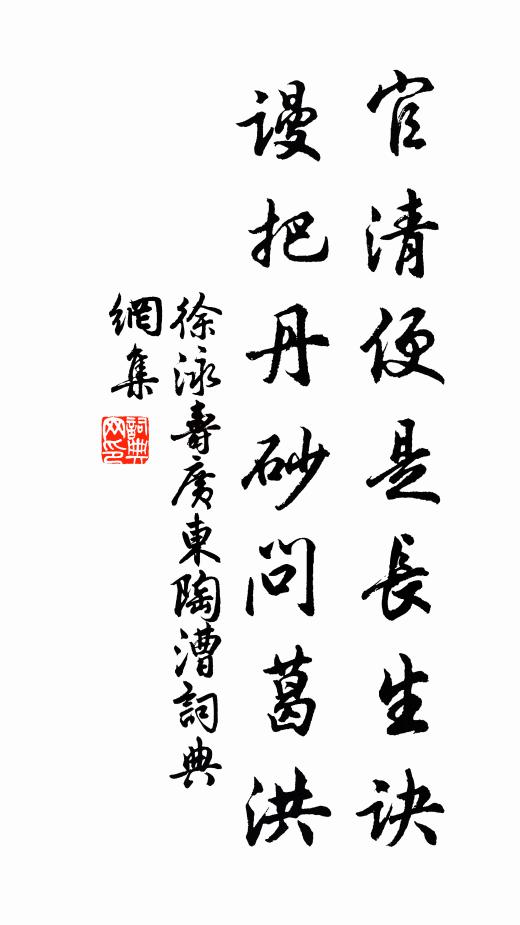 官清便是長生訣
謾把丹砂問葛洪
徐泳壽廣東陶漕詞典
網集
詞典
网印